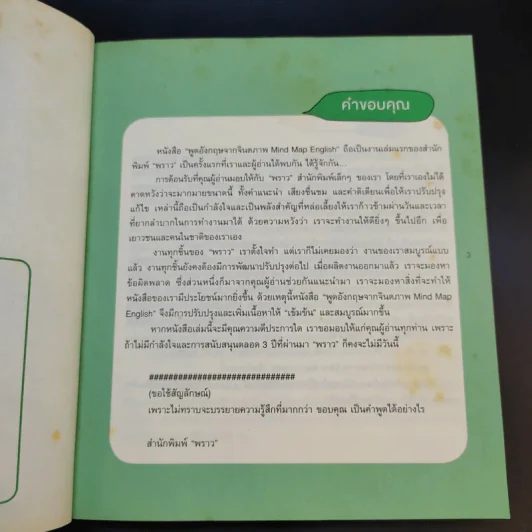 คำขอบคุณ
หนังสือ "พูดอังกฤษจากจินตภาพ Mind Map English" ถือเป็นงานเล่มแรกของสำนัก
พิมพ์ "พราว" เป็นครั้งแรกที่เราและผู้อ่านได้พบกัน ได้รู้จักกัน...
การต้อนรับที่คุณผู้อ่านมอบให้กับ "พราว" สำนักพิมพ์เล็กๆ ของเรา โดยที่เราเองไม่ได้
คาดหวังว่าจะมากมายขนาดนี้ ทั้งคำแนะนำ เสียงชื่นชม และคำติเตียนเพื่อให้เราปรับปรุง
แก้ไข เหล่านี้ถือเป็นกำลังใจและเป็นพลังสำคัญที่หล่อเลี้ยงให้เราก้าวข้ามผ่านวันและเวลา
ที่ยากลำบากในการทำงานมาได้ ด้วยความหวังว่า เราจะทำงานให้ดียิ่งๆ ขึ้นไปอีก เพื่อ
เยาวชนและคนในชาติของเราเอง
งานทุกชิ้นของ "พราว" เราตั้งใจทำ แต่เราก็ไม่เคยมองว่า งานของเราสมบูรณ์แบบ
แล้ว งานทุกชิ้นยังคงต้องมีการพัฒนาปรับปรุงต่อไป เมื่อผลิตงานออกมาแล้ว เราจะมองหา
ข้อผิดพลาด ซึ่งส่วนหนึ่งก็มาจากคุณผู้อ่านช่วยกันแนะนำมา เราจะมองหาสิ่งที่จะทำให้
หนังสือของเรามีประโยชน์มากยิ่งขึ้น ด้วยเหตุนี้หนังสือ "พูดอังกฤษจากจินตภาพ Mind Map
English" จึงมีการปรับปรุงและเพิ่มเนื้อหาให้ "เข้มข้น" และสมบูรณ์มากขึ้น
หากหนังสือเล่มนี้จะมีคุณความดีประการใด เราขอมอบให้แก่คุณผู้อ่านทุกท่าน เพราะ
ถ้าไม่มีกำลังใจและการสนับสนุนตลอด 3 ปีที่ผ่านมา "พราว" ก็คงจะไม่มีวันนี้
##############################
(ขอใช้สัญลักษณ์)
เพราะไม่ทราบจะบรรยายความรู้สึกที่มากกว่า ขอบคุณ เป็นคำพูดได้อย่างไร
สำนักพิมพ์ "พราว"
3